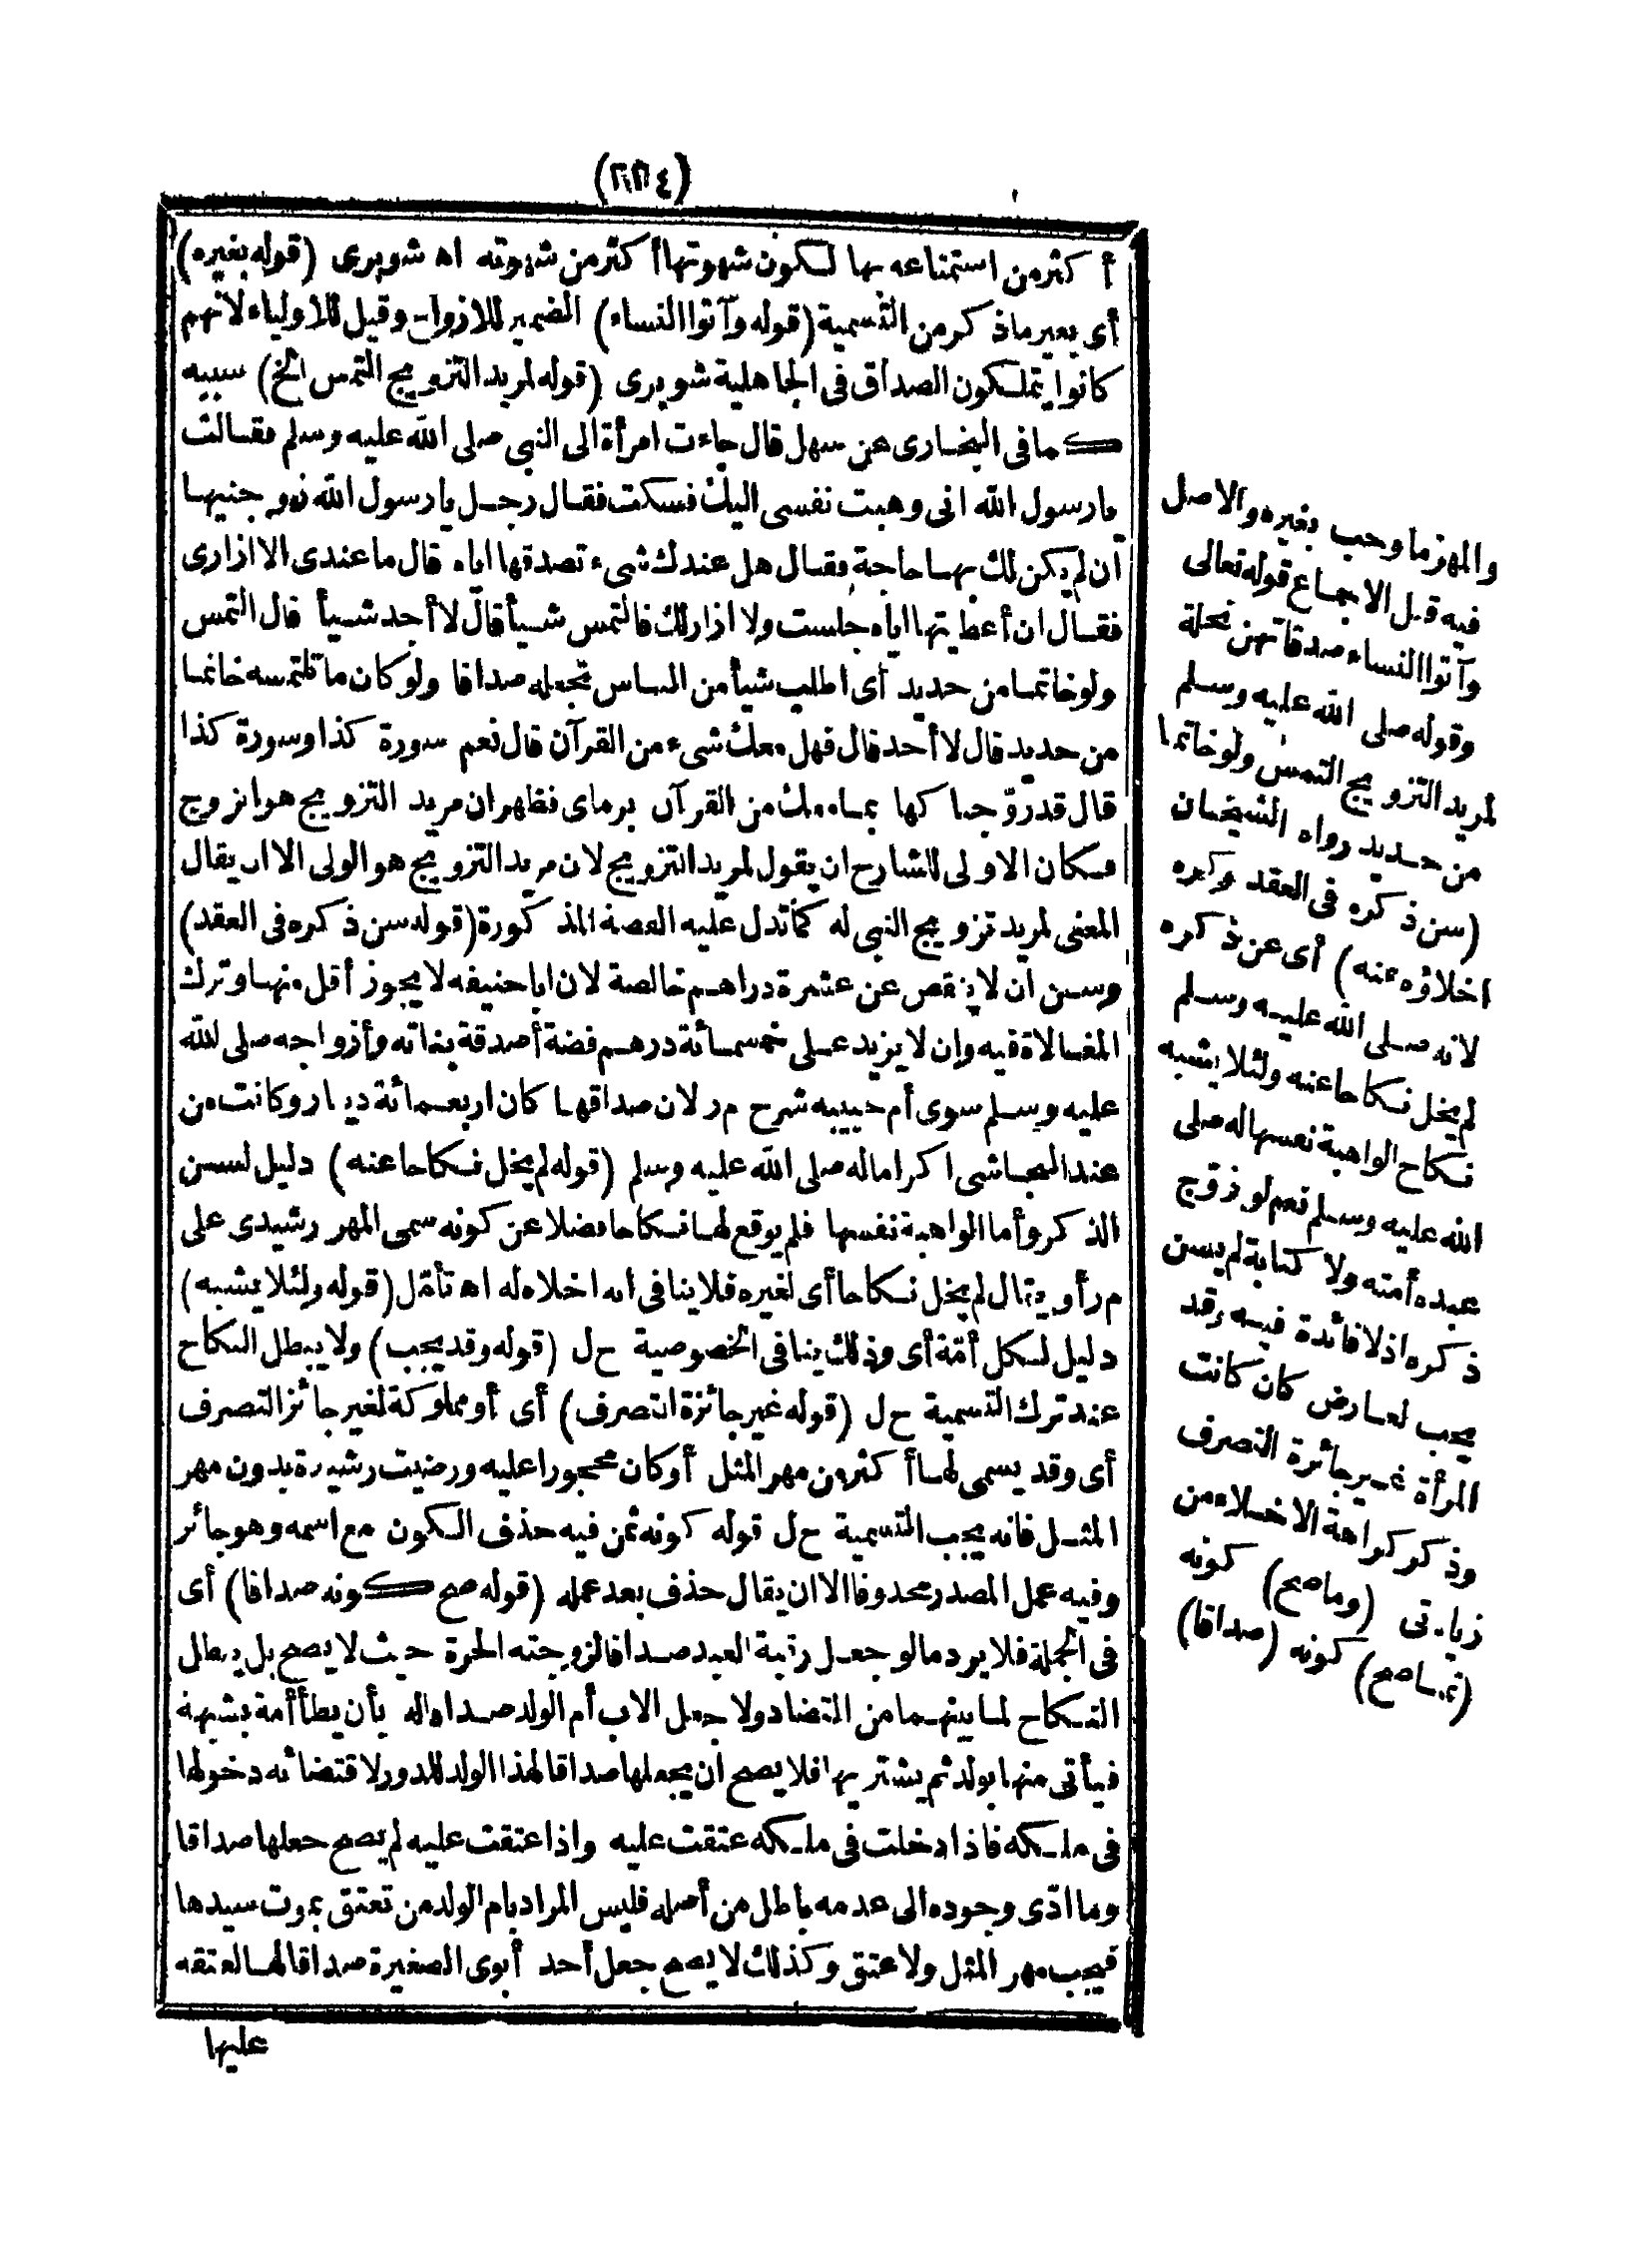 أكثر من استمتاعه بها لكون شهوتها أكثر من شهوته اه شوبرى (قوله بغيره)
أى بغير ماذكر من التسمية (قوله وآتوا النساء) الضمير للازواج وقيل للاولياء لانهم
كانوا يتملكون الصداق فى الجاهلية شوبرى (قوله لمريد التزويج التمس الخ) سببه
كما فى البخارى عن سهل قال جاءت امرأة الى النبى صلى الله عليه وسلم فقالت
يا رسول الله انى وهبت نفسى اليك فسكت فقال رجل يا رسول الله زوجنيها
ان لم يكن لك بها حاجة فقال هل عندك شىء تصدقها اياه قال ما عندى الا ازارى
فقال ان أعطيتها اياه جلست ولا ازار لك فالتمس شيأ قال لا أجد شيأ قال التمس
ولو خاتما من حديد أى اطلب شيأ من الناس تجعله صداقا ولو كان ما تلتمسه خاتما
من حديد قال لا أجد قال فهل معك شىء من القرآن قال نعم سورة كذا وسورة كذا
قال قد زوّجناكها بما معك من القرآن برماى فظهر ان مريد التزويج هو الزوج
فكان الاولى للشارح ان يقول لمريد التزوج لان مريد التزويج هو الولى الا ان يقال
المعنى لمريد تزويج النبى له كما تدل عليه القصة المذكورة (قوله سن ذكره فى العقد)
وسن ان لا ينقص عن عشرة دراهم خالصة لان ابا حنيفه لا يجوز أقل منها وترك
المغالاة فيه وان لا يزيد على خمسمائة درهم فضة أصدقة بناته وأزواجه صلى الله
عليه وسلم سوى أم حبيبه شرح م ر لان صداقها كان اربعمائة دينار وكانت من
عند النجاشى اكراما له صلى الله عليه وسلم (قوله لم يخل نكاحا عنه) دليل لسن
الذكر وأما الواهبة نفسها فلم يوقع لها نكاحا فضلا عن كونه سمى المهر رشيدى على
م ر أو يقال لم يخل نكاحا أى لغيره فلا ينافى انه اخلاه له اه تأمّل (قوله ولئلا يشبه)
دليل لكل أمّة أى وذلك ينافى الخصوصية ح ل (قوله وقد يجب) ولا يبطل النكاح
عند ترك التسمية ح ل (قوله غير جائزة التصرف) أى أو مملوكة لغير جائز التصرف
أى وقد يسمى لها أكثر من مهر المثل أو كان محجورا عليه ورضيت رشيدة بدون مهر
المثل فانه يجب التسمية ح ل قوله كونه ثمن فيه حذف الكون مع اسمه وهو جائز
وفيه عمل المصدر محذوفا الا ان يقال حذف بعد عمله (قوله صح كونه صداقا) أى
فى الجملة فلا يرد ما لو جعل رقبة العبد صداقا لزوجته الحرة حيث لا يصح بل يبطل
النكاح لما بينهما من التضاد ولا جعل الاب أم الولد صداقا له بأن يطأ أمة بشبهة
فيأتى منها بولد ثم يشتريها فلا يصح ان يجعلها صداقا لهذا الولد للدور لاقتضائه دخولها
فى ملكه فاذا دخلت فى ملكه عتقت عليه واذا عتقت عليه لم يصح جعلها صداقا
وما ادّى وجوده الى عدمه باطل من أصله فليس المراد بام الولد من تعتق بموت سيدها
فيجب مهر المثل ولا عتق وكذلك لا يصح جعل أحد أبوى الصغيرة صداقا لها لعتقه
عليها
والمهر ما وجب بغيره والاصل
فيه قبل الاجماع قوله تعالى
وآتوا النساء صدقاتهن نحلة
وقوله صلى الله عليه وسلم
لمريد التزويج التمس ولو خاتما
من حديد رواه الشيخان
(سن ذكره فى العقد وكره
اخلاؤه عنه) أى عن ذكره
لانه صلى الله عليه وسلم
لم يخل نكاحا عنه ولئلا يشبه
نكاح الواهبة نفسها له صلى
الله عليه وسلم نعم لو زوّج
عبده أمته ولا كتابة لم يسن
ذكره اذ لا فائدة فيه وقد
يجب لعارض كان كانت
المرأة غير جائزة التصرف
وذكر كراهة الاخلاء من
زيادتى (وما صح) كونه
(ثمنا صح) كونه (صداقا)